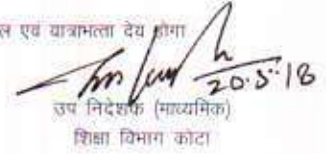 ल एवं यात्राभत्ता देय होगा
20.5.18
उप निदेशक (माध्यमिक)
शिक्षा विभाग कोटा